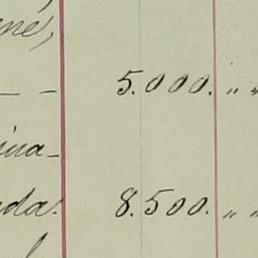 né,
— — 5.000. " "
ina-
da. 8.500. " "